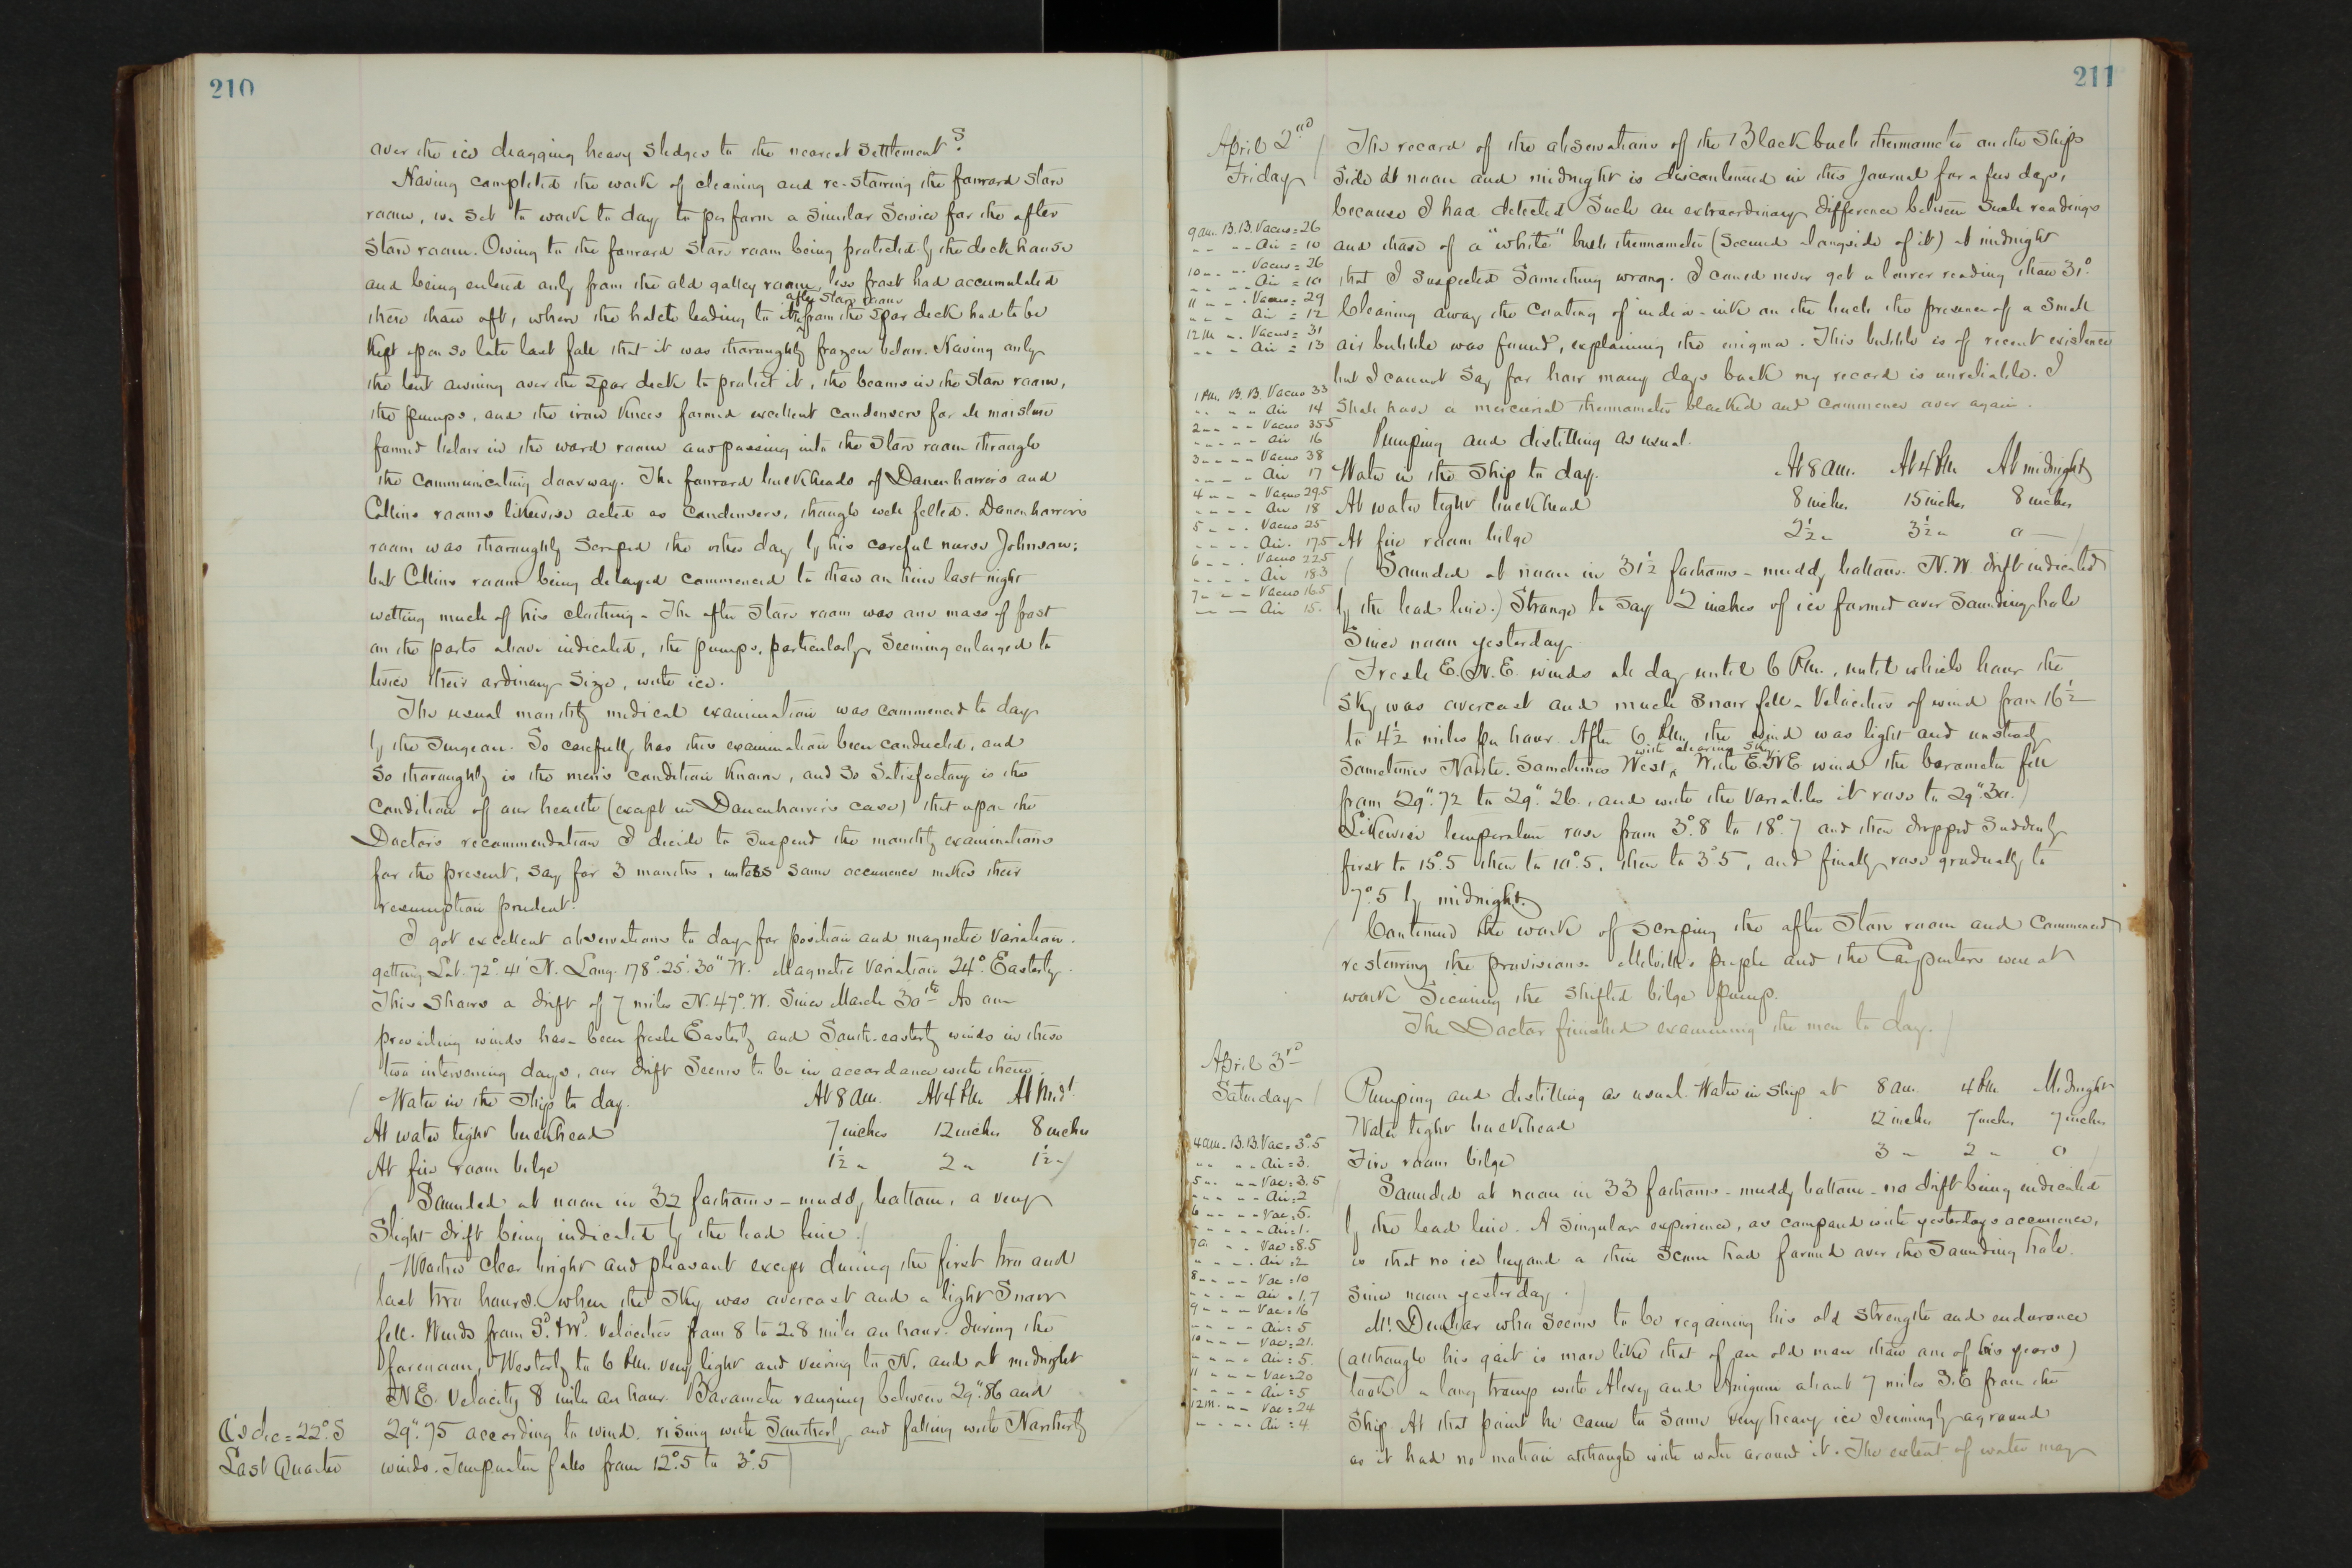 210
over the ice dragging heavy sledges to the nearest settlements?
Having completed the work of cleaning and re-stowing the forward store
room, we set to work to day to perform a similar service for the after
store room. Owing to the forward store room being protected by the deck house
and being entered only from the old galley room, less frost had accumulated
there than aft, where the hatch leading to the after store room from the spar deck had to be
kept open so late last fall that it was thoroughly frozen below. Having only
the tent awning over the spar deck to protect it, the beams in the store room,
the pumps, and the iron knees formed excellent condensers for all moisture
formed below in the ward room and passing into the store room through
the communicating doorway. The forward bulkheads of Danenhower's and
Collins rooms likewise acted as condensers, though well felted. Danenhower's
room was thoroughly scraped the other day by his careful nurse Johnson;
but Collins room being delayed commenced to thaw on him last night
wetting much of his clothing. The after store room was one mass of frost
on the parts above indicated, the pumps, particularly, seeming enlarged to
twice their ordinary size, with ice.
The usual monthly medical examination was commenced to day
by the Surgeon. So carefully has this examination been conducted, and
so thoroughly is the men's condition known, and so satisfactory is the
condition of our health (except in Danenhower's case) that upon the
Doctor's recommendation I decide to suspend the monthly examinations
for the present, say for 3 months, unless some occurrence makes their
resumption prudent.
I got excellent observations to day for position and magnetic variation.
getting Lat. 72° 41' N. Long. 178° 25' 30" W. Magnetic Variation 24° Easterly.
This shows a drift of 7 miles N. 47° W. Since March 30th. As our
prevailing winds have been fresh Easterly and South-easterly winds in these
two intervening days, our drift seems to be in accordance with them.
Water in the Ship to day. At 8 am. At 4 Pm At Midt.
At water tight bulkhead 7 inches 12 inches 8 inches
At fire room bilge 1½ " 2 " 1½ "
Sounded at noon in 32 fathoms - muddy bottom, a very
slight drift being indicated by the lead line.
Weather clear bright and pleasant except during the first two and
last two hours when the sky was overcast and a light snow
fell. Winds from Sd. & Wd. velocities from 8 to 2.8 miles an hour. during the
forenoon, Westerly to 6 Pm. very light and veering to N. and at midnight
N.E. velocity 8 miles an hour. Barometer ranging between 29".86 and
29".75 according to wind. rising with Southerly and falling with Northerly
winds. Temperature falls from 12°.5 to 3°.5
☾'s dec = 22° S
Last Quarter
211
April 2nd
Friday
The record of the observations of the Black bulb thermometer on the Ships
side at noon and midnight is discontinued in this Journal for a few days,
because I had detected such an extraordinary difference between such readings
and those of a "white" bulb thermometer (secured alongside of it) at midnight
that I suspected something wrong. I could never get a lower reading than 31°.
Cleaning away the coating of india-ink on the bulb the presence of a small
air bubble was found, explaining the enigma. This bubble is of recent existence
but I cannot say for how many days back my record is unreliable. I
shall have a mercurial thermometer blacked and commence over again.
Pumping and distilling as usual.
Water in the Ship to day. At 8 am. At 4 Pm At midnight
At water tight bulkhead 8 inches 15 inches 8 inches
At fire room bilge 2½ " 3½ " 0 —
Sounded at noon in 31½ fathoms - muddy bottom. N.W. drift indicated
by the lead line. Strange to say 2 inches of ice formed over sounding hole
since noon yesterday.
Fresh E.N.E. winds all day until 6 Pm., until which hour the
sky was overcast and much snow fell. Velocities of wind from 16½
to 4½ miles per hour. After 6 Pm. the wind was light and unsteady
sometimes North. sometimes West, with clearing sky. With E.N.E wind the barometer fell
from 29".72 to 29".26., and with the variables it rose to 29".30.
Likewise temperature rose from 3°.8 to 18°.7 and then dropped suddenly
first to 15°.5 then to 10°.5, then to 3°.5, and finally rose gradually to
7°.5 by midnight.
Continued the work of scraping the after store room and commenced
restowing the provisions. Melville's people and the Carpenters were at
work securing the shifted bilge pump.
The Doctor finished examining the men to day.
9 am. B.B. Vacuo = 26
" " " Air = 10
10 " " " Vacuo = 26
" " " Air = 10
11 " " " Vacuo = 29
" " " Air = 12
12 M " " Vacuo = 31
" " " Air = 13
1 Pm. B.B. Vacuo 33
" " " " Air 14
2 " " " Vacuo 35.5
" " " " Air 16
3 " " " " Vacuo 38
" " " " Air 17
4 " " " Vacuo 29.5
" " " " Air 18
5 " " " Vacuo 25
" " " " Air. 17.5
6 " " " Vacuo 22.5
" " " " Air 18.3
7 " " " Vacuo 16.5
" " " Air 15.
April 3rd
Saturday
Pumping and distilling as usual. Water in ship at 8 am. 4 Pm. Midnight
Water tight bulkhead 12 inches 7 inches 7 inches
Fire room bilge 3 " 2 " 0
Sounded at noon in 33 fathoms - muddy bottom - no drift being indicated
by the lead line. A singular experience, as compared with yesterdays occurrence,
is that no ice beyond a thin scum had formed over the sounding hole
since noon yesterday.
Mr. Dunbar who seems to be regaining his old strength and endurance
(although his gait is more like that of an old man than one of his years)
took a long tramp with Alexey and Aniguin about 7 miles S.E from the
Ship. At that point he came to some very heavy ice seemingly aground
as it had no motion although with water around it. The extent of water may
4 am. B.B. Vac = 3°.5
" " " " Air = 3.
5 " " " " Vac = 3.5
" " " " Air = 2
6 " " " " Vac. 5.
" " " " Air = 1.
7 " " " Vac = 8.5
" " " " Air = 2
8 " " " " Vac = 10
" " " " Air = 1.7
9 " " " Vac = 16
" " " " Air = 5
10 " " " Vac = 21.
" " " " Air = 5.
11 " " " Vac = 20
" " " " Air = 5
12 m. " " Vac = 24
" " " " Air = 4